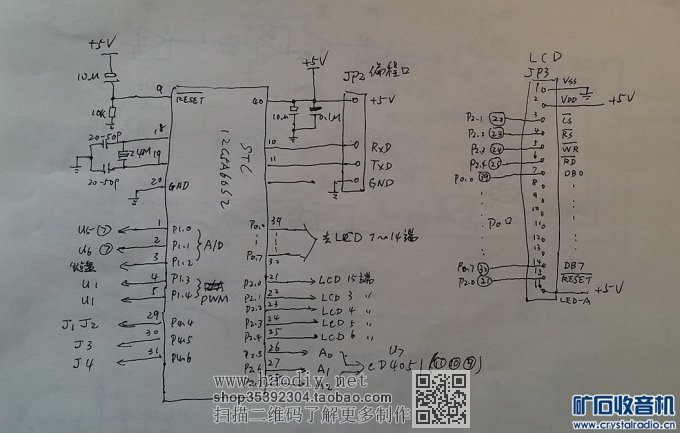 +5V
10μ
9
RESET
10K
20-50P
18
24M
19
20-50P
20
GND
STC
12C5A60S2
+5V
40
10μ
0.1μ
JP2 编程口
+5V
10
RXD
11
TXD
GND
U5 ⑦
1
P1.0
U6 ⑦
2
P1.1
A/D
3
P1.2
U1
4
P1.3
U1
5
P1.4
PWM
J1 J2
29
P4.4
J3
30
P4.5
J4
31
P4.6
P0.0
39
P0.7
32
去LCD 7~14端
P2.0
21
LCD 15端
P2.1
22
LCD 3 〃
P2.2
23
LCD 4 〃
P2.3
24
LCD 5 〃
P2.4
25
LCD 6 〃
P2.5
26
A0
P2.6
27
A1
28
A2
U7
CD4051
LCD
JP3
1
VSS
2
VDD
+5V
P2.1 22
3
CS
P2.2 23
4
RS
P2.3 24
5
WR
P2.4 25
6
RD
P0.0 39
7
DB0
8
9
10
11
12
13
P0.7 32
14
DB7
P2.0 21
15
RESET
16
LED-A
+5V
www.haodiy.com
shop35892304.taobao.com
扫描二维码了解更多制作
矿石收音机
www.crystalradio.cn